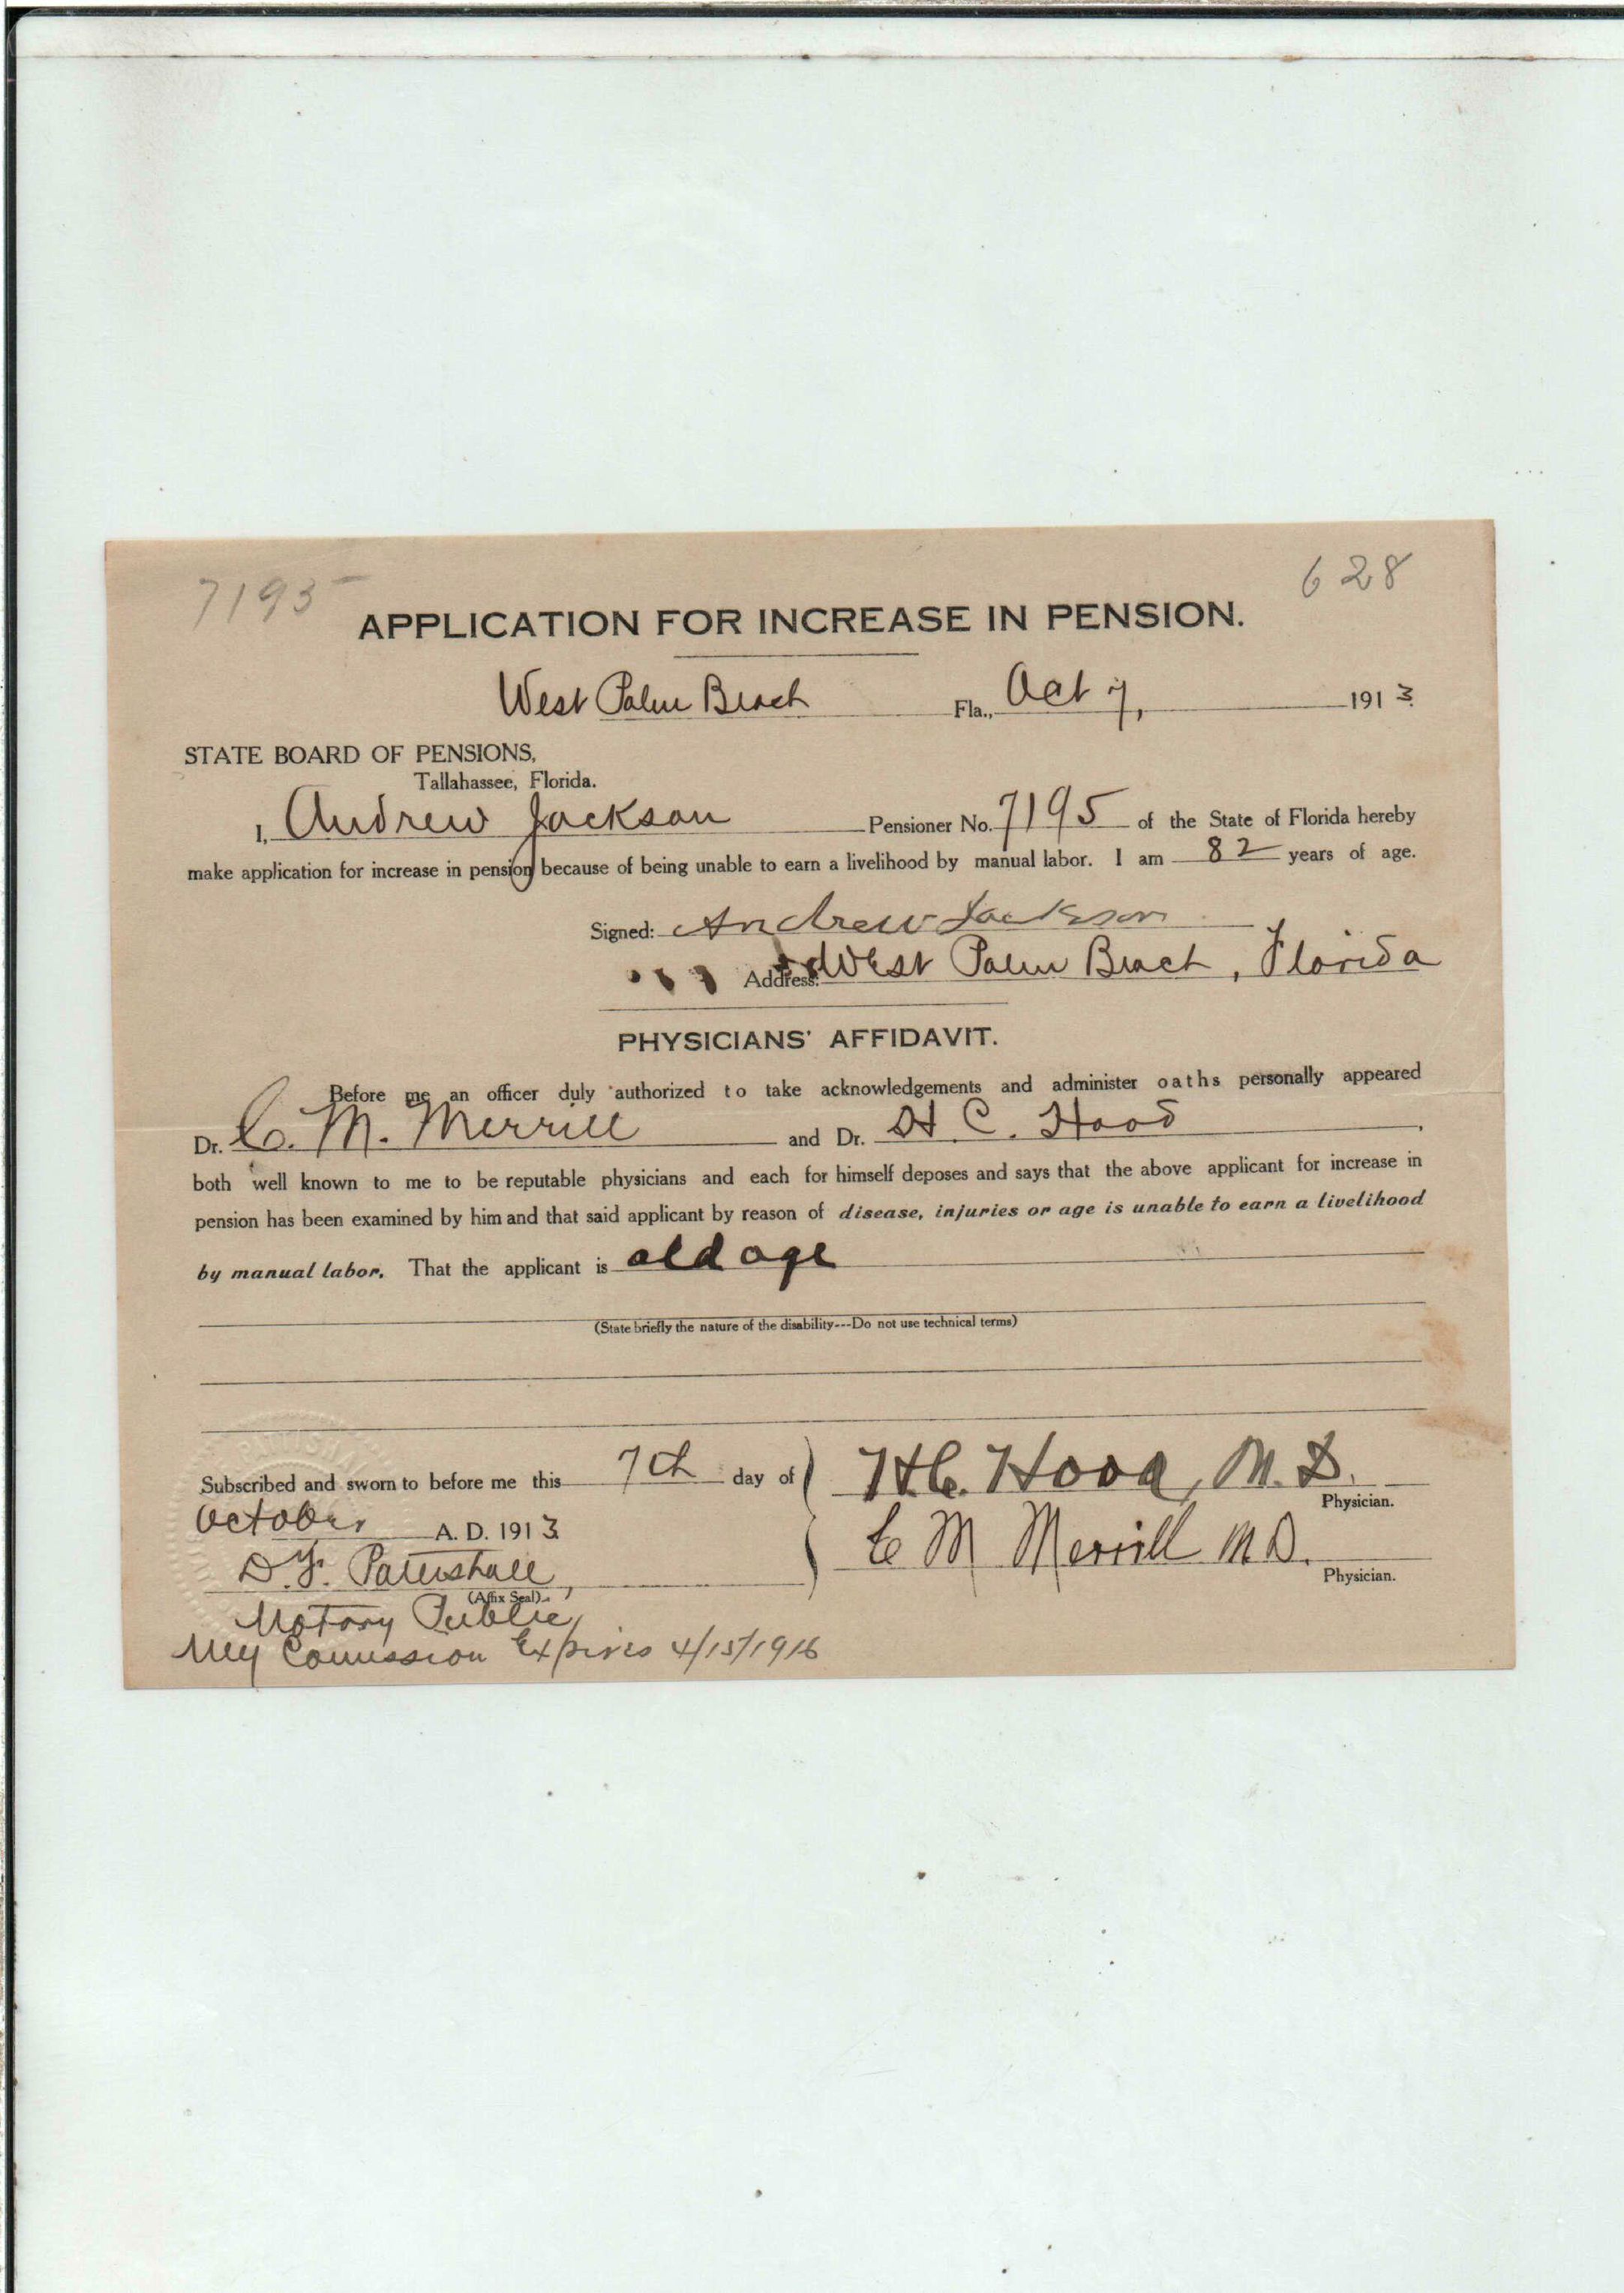 7195
628
APPLICATION FOR INCREASE IN PENSION.
West Palm Beach Fla., Oct 7, 1913
STATE BOARD OF PENSIONS,
Tallahassee, Florida.
I, Andrew Jackson Pensioner No. 7195 of the State of Florida hereby
make application for increase in pension because of being unable to earn a livelihood by manual labor. I am 82 years of age.
Signed: Andrew Jackson
Address: West Palm Beach, Florida
PHYSICIANS' AFFIDAVIT.
Before me an officer duly authorized to take acknowledgements and administer oaths personally appeared
Dr. C. M. Merrill and Dr. H. C. Hood,
both well known to me to be reputable physicians and each for himself deposes and says that the above applicant for increase in
pension has been examined by him and that said applicant by reason of disease, injuries or age is unable to earn a livelihood
by manual labor. That the applicant is old age
(State briefly the nature of the disability---Do not use technical terms)
Subscribed and sworn to before me this 7th day of
October A. D. 1913
H.C. Hood, M.D.
Physician.
C M Merrill M.D.
Physician.
D.F.
(Affix Seal)
Notary Public,
My Comission Expires 4/15/1916